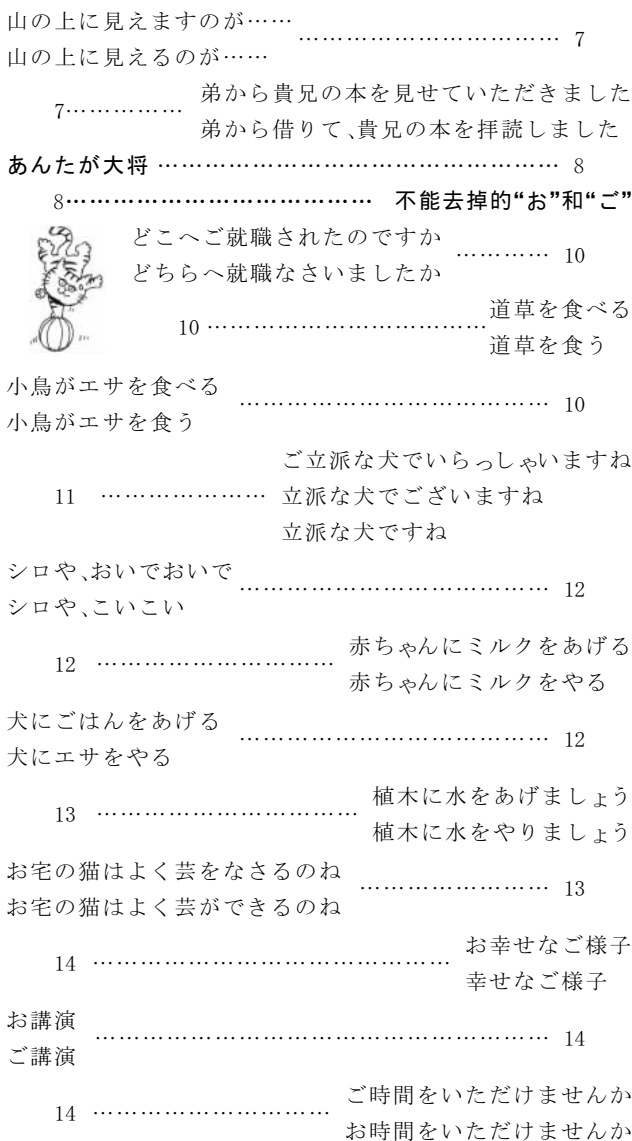 山の上に見えますのが……
………………………… 7
山の上に見えるのが……
弟から貴兄の本を見せていただきました
7……………
弟から借りて、貴兄の本を拝読しました
あんたが大将 …………………………………………… 8
8………………………………… 不能去掉的“お”和“ご”
どこへご就職されたのですか
………… 10
どちらへ就職なさいましたか
道草を食べる
10 ………………………………
道草を食う
小鳥がエサを食べる
………………………………… 10
小鳥がエサを食う
ご立派な犬でいらっしゃいますね
11 ………………… 立派な犬でございますね
立派な犬ですね
シロや、おいでおいで
………………………………… 12
シロや、こいこい
赤ちゃんにミルクをあげる
12 …………………………
赤ちゃんにミルクをやる
犬にごはんをあげる
………………………………… 12
犬にエサをやる
植木に水をあげましょう
13 ……………………………
植木に水をやりましょう
お宅の猫はよく芸をなさるのね
…………………… 13
お宅の猫はよく芸ができるのね
お幸せなご様子
14 ………………………………………
幸せなご様子
お講演
………………………………………………… 14
ご講演
ご時間をいただけませんか
14 …………………………
お時間をいただけませんか